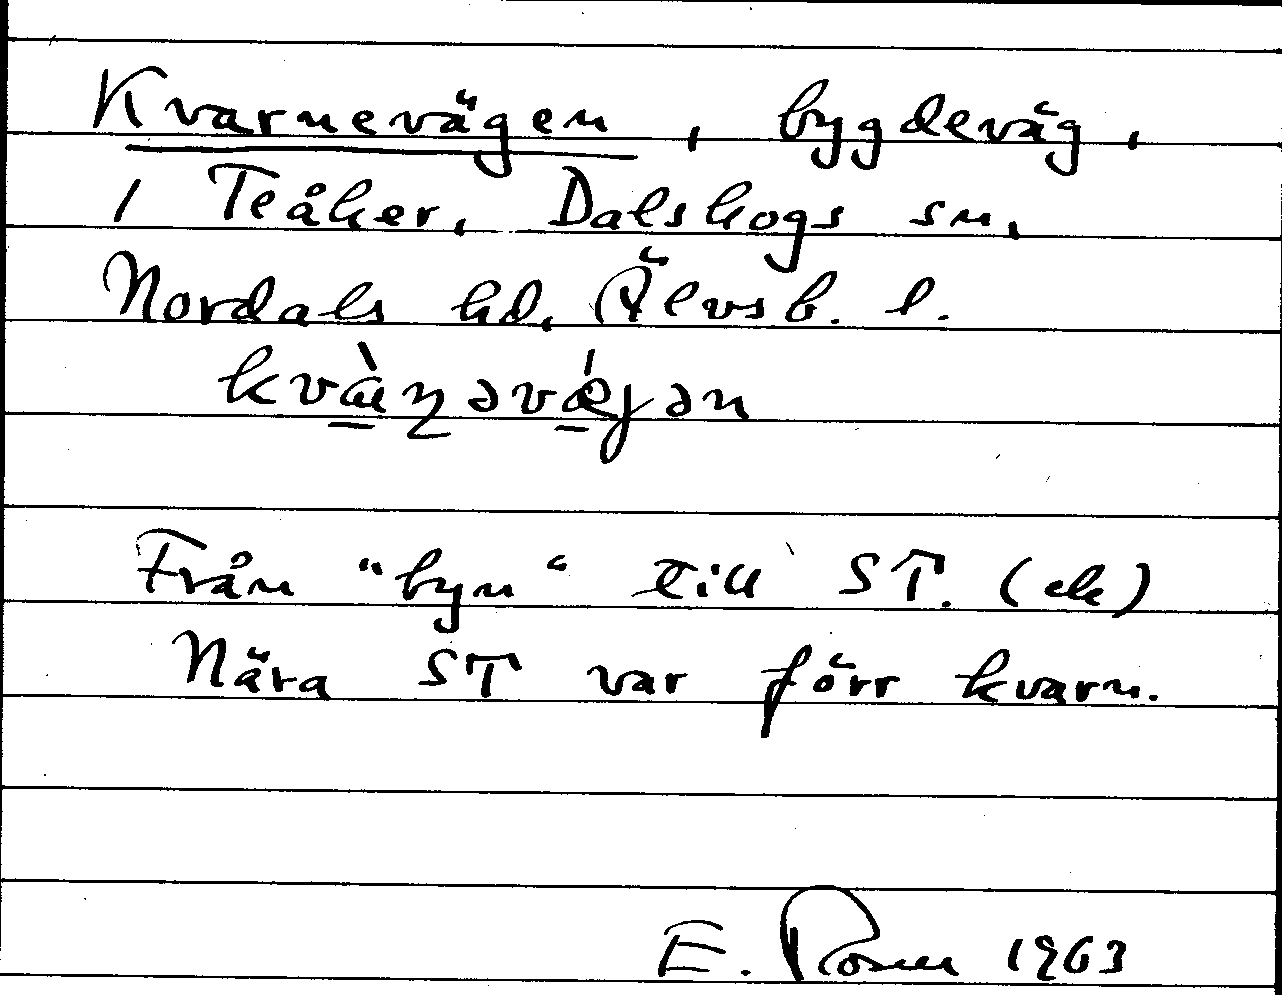 Kvarnevägen, bygdeväg,
1 Teåker, Dalskogs sn,
Nordals hd, Älvsb. l.
kvàṇəvǽjən
Från "byn" till ST. (ek)
Nära ST var förr kvarn.
E. Rosen 1963